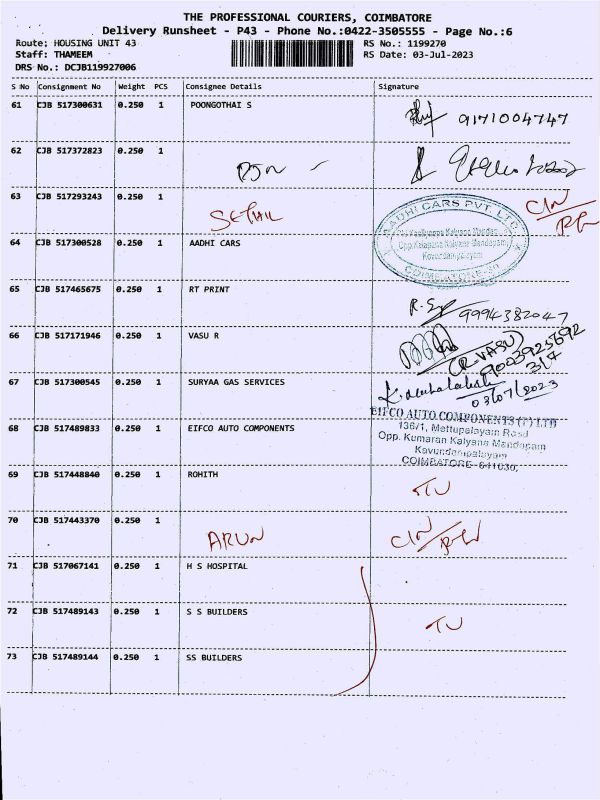 THE PROFESSIONAL COURIERS, COIMBATORE
Delivery Runsheet - P43 - Phone No.:0422-3505555 - Page No.:6
Route; HOUSING UNIT 43 RS No.: 1199270
Staff: THAMEEM RS Date: 03-Jul-2023
DRS No.: DCJB119927006
S No Consignment No Weight PCS Consignee Details Signature
61 CJB 517300631 0.250 1 POONGOTHAI S
9171004747
62 CJB 517372823 0.250 1
63 CJB 517293243 0.250 1
AADHI CARS PVT. LTD
64 CJB 517300528 0.250 1 AADHI CARS
Opp.Kalapana Kalyana Mandapam
Kavundampalayam
COIMBATORE-30
65 CJB 517465675 0.250 1 RT PRINT
9994382047
66 CJB 517171946 0.250 1 VASU R
(R.VASU)
9003925692
3/7
67 CJB 517300545 0.250 1 SURYAA GAS SERVICES
03/07/2023
EIFCO AUTO COMPONENTS (P) LTD
68 CJB 517489833 0.250 1 EIFCO AUTO COMPONENTS
136/1, Mettupalayam Road
Opp. Kumaran Kalyana Mandapam
Kavundampalayam
COIMBATORE-641030,
69 CJB 517448840 0.250 1 ROHITH
70 CJB 517443370 0.250 1
ARUN
71 CJB 517067141 0.250 1 H S HOSPITAL
72 CJB 517489143 0.250 1 S S BUILDERS
73 CJB 517489144 0.250 1 SS BUILDERS